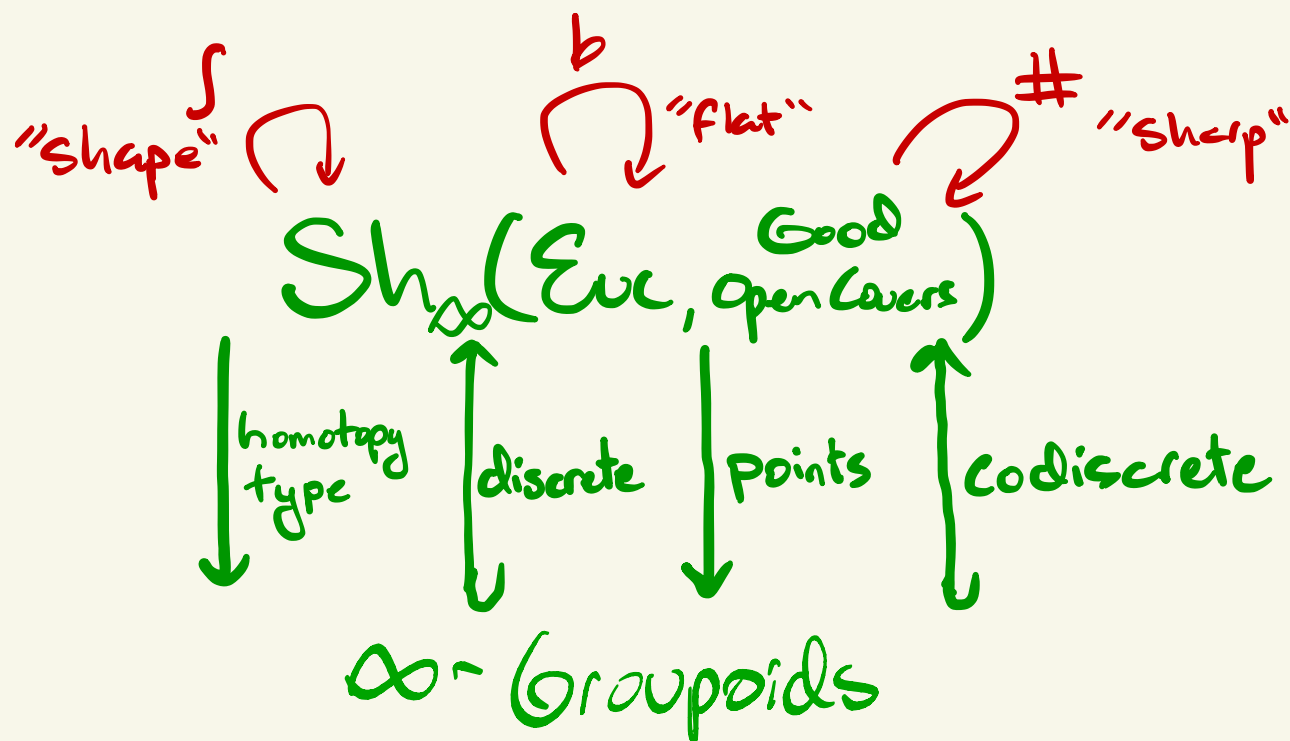 ∫ ♭ #
"shape" "flat" "sharp"
Sh∞(Euc, Good Open Covers)
homotopy type
discrete
points
codiscrete
∞-Groupoids